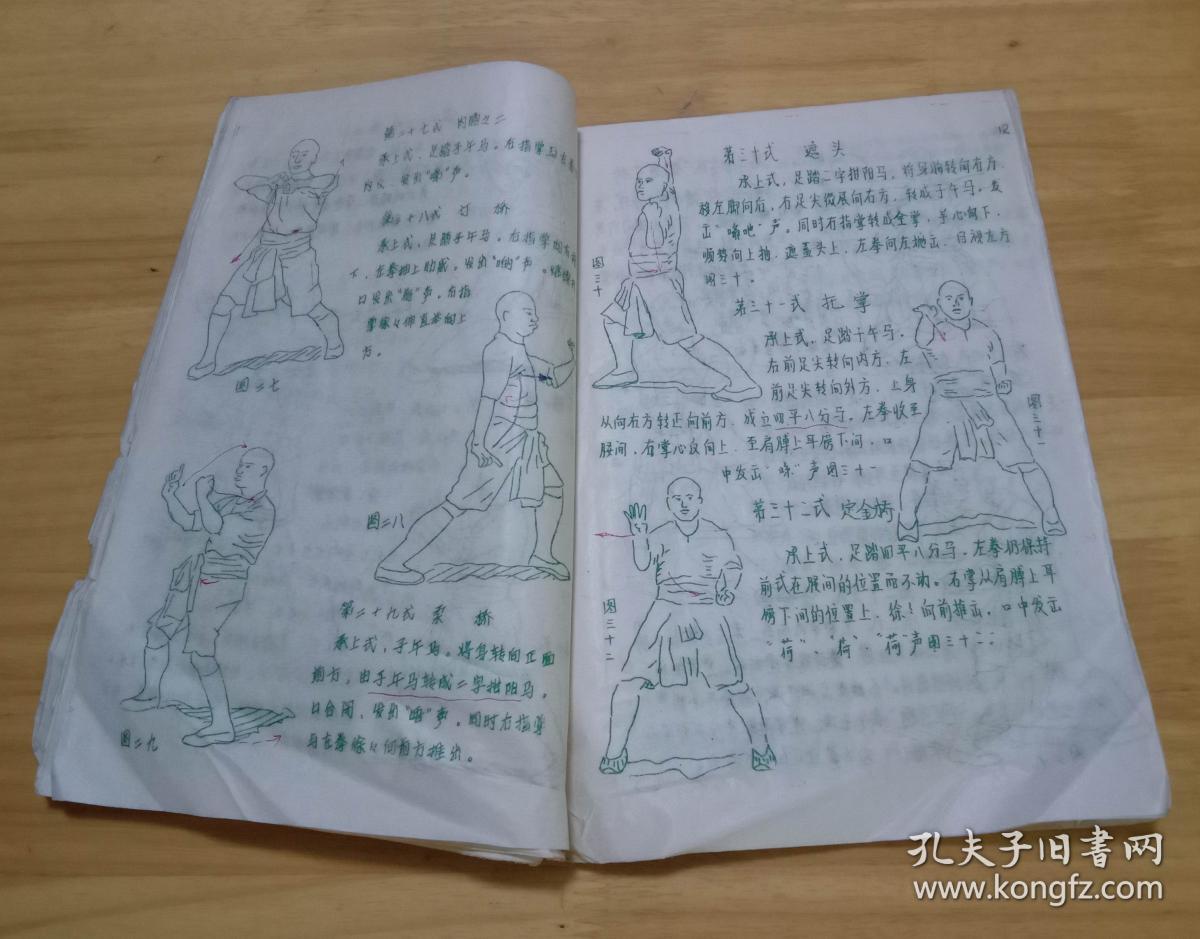 11
第二十七式 内膀之二
承上式，足踏子午马。右指掌与左拳
发出"嘶"声。
第二十八式 灯 桥
承上式，足踏子午马。右指掌
下，左拳抽上助威，发出"哟"声。
口发出"声，右指
掌徐々伸直举向上
方。
图二七
图二八
第二十九式 梨 桥
承上式，子午马。将身转向正面
前方，由子午马转成二字拑阳马，
口合闭，发出"声，同时右指掌
与左拳徐々向前方推出。
图二九
12
第三十式 遮头
承上式，足踏二字拑阳马，将身转向右方
移左脚向后，右足尖微展向右方，转成子午马，发
出"嗬吔"声。同时右指掌转成全掌，掌心向下，
顺势向上抽，遮盖头上，左拳向左抛出，目视左方
图三十。
图三十
第三十一式 托掌
承上式，足踏子午马，
右前足尖转向内方，左
前足尖转向外方，上身
从向右方转正向前方，成立四平八分马，左拳收至
腰间，右掌心反向上，至肩膊上耳傍下间，口
中发出"咊"声图三十一
图三十一
第三十二式 定金桥
承上式，足踏四平八分马，左拳仍保持
前式在腰间的位置而不动。右掌从肩膊上耳
傍下间的位置上，徐々向前推出，口中发出
"荷"、"荷"、"荷"声图三十二：
图三十二
孔夫子旧书网
www.kongfz.com